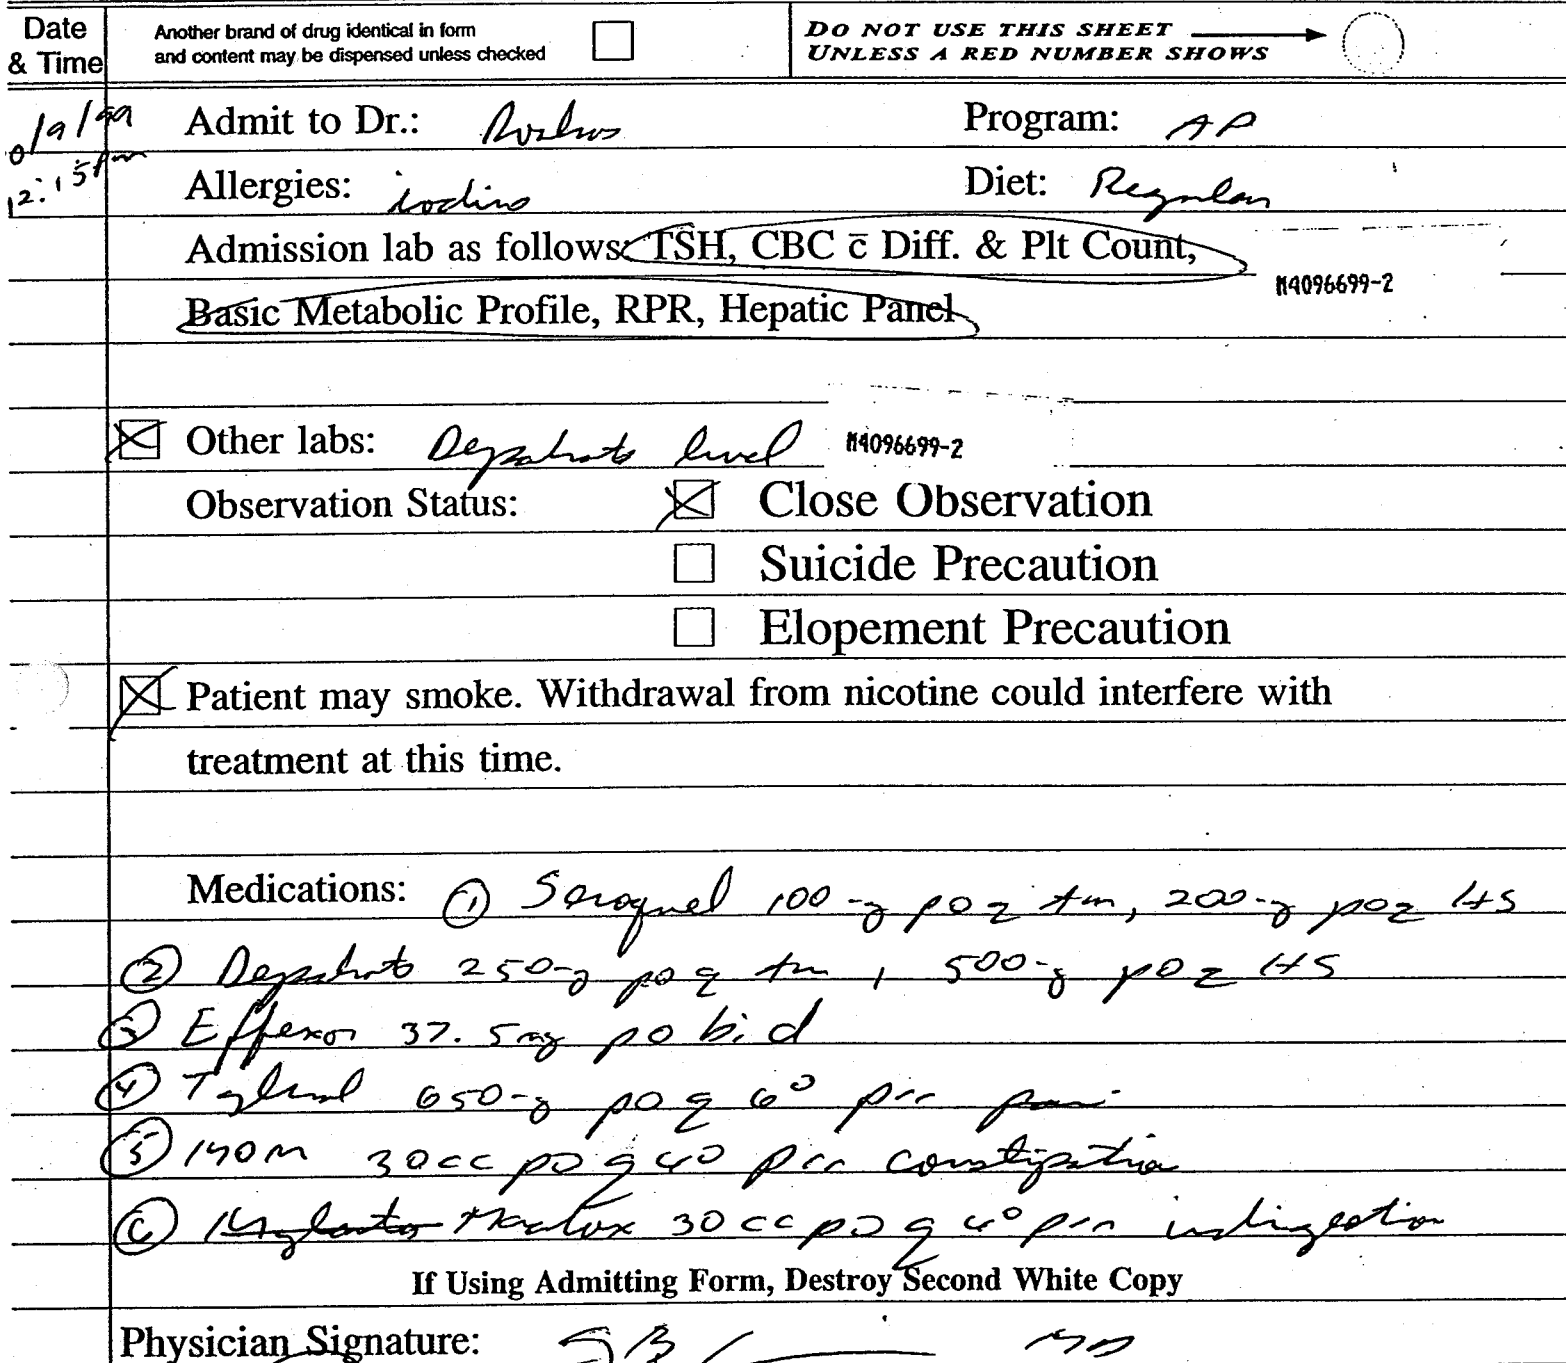 Date & Time
Another brand of drug identical in form
and content may be dispensed unless checked
DO NOT USE THIS SHEET
UNLESS A RED NUMBER SHOWS
/9/99
12:15pm
Admit to Dr.:
Program: AP
Allergies: iodine
Diet: Regular
Admission lab as follows: TSH, CBC c̄ Diff. & Plt Count,
M4096699-2
Basic Metabolic Profile, RPR, Hepatic Panel
Other labs: Depakote level M4096699-2
Observation Status: Close Observation
Suicide Precaution
Elopement Precaution
Patient may smoke. Withdrawal from nicotine could interfere with
treatment at this time.
Medications: ① Seroquel 100mg po q Am, 200mg po q HS
② Depakote 250mg po q Am, 500mg po q HS
③ Effexor 37.5mg po bid
④ Tylenol 650mg po q 6° prn pain
⑤ MOM 30cc po q 4° prn constipation
⑥ Mylanta Maalox 30cc po q 4° prn indigestion
If Using Admitting Form, Destroy Second White Copy
Physician Signature: MD